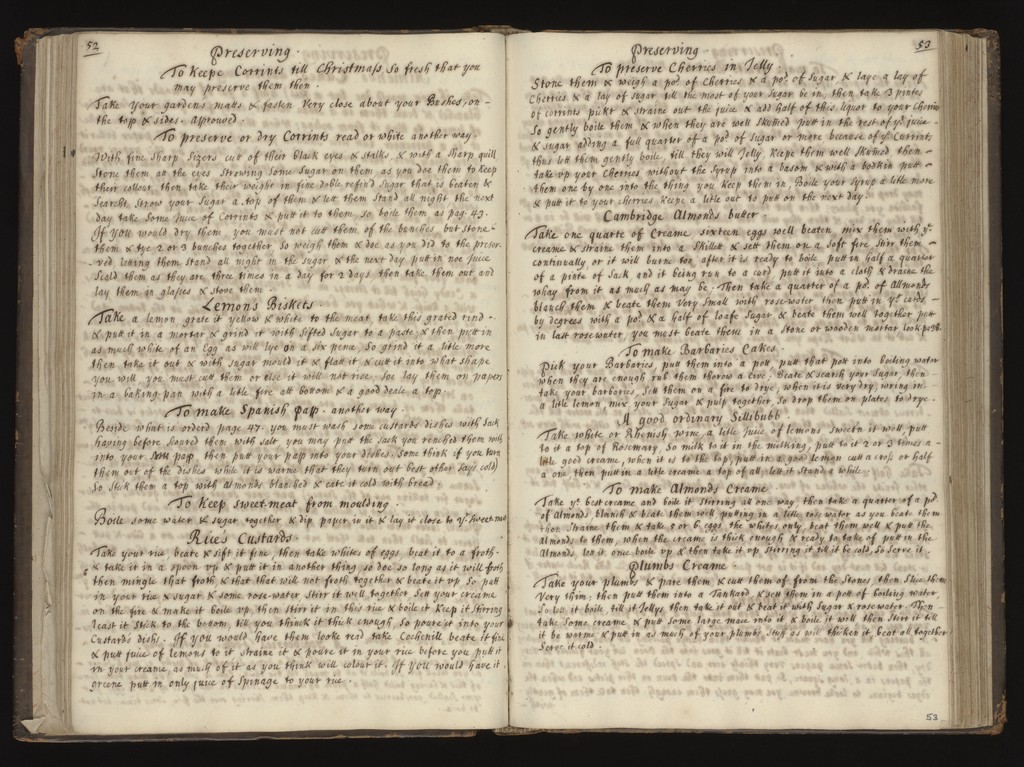 52
Preserving.
To keepe Corrints till Christmass so fresh that you
may preserve them then.
Take your gardens matts & fasten very close about your Bushes, on-
the top & sides. aprooved.
To preserve or dry Corrints read or white another way.
With fine sharp Sizers cut of their black eyes & stalks, & with a sharp quill
stone them att the eyes strewing some sugar on them as you doe them to keep
their collour, then take their weight in fine doble refin'd sugar that is beaten &
searcht, strow your sugar a top of them & lett them stand all night the next
day take some juce of Corrints & putt it to them, so boile them as pag 43.
If you would dry them you must not cutt them of the bunches but stone
them & tye 2 or 3 bunches together, so weigh them & doe as you did to the preser-
ved letting them stand all night in the sugar & the next day putt in noe juce
scald them as they are three times in a day for 2 days then take them out and
lay them in glasses & stove them.
Lemons Biskets
Take a lemon grate it yellow & white to the meat, take this grated rind-
& putt it in a mortar & grind it with sifted sugar to a paste, & then putt in
as much white of an Egg as will lye on a six pence, so grind it a litle more
then take it out & with sugar mould it & flatt it & cutt it into what shape
you will you must cutt them or else it will not rise, soe lay them on papers
in a baking pan with a litle fire att bottom & a good deale a top.
To make Spanish pap. another way.
Beside what is orderd page 47. you must wash some custards dishes with sack
having before scoured them with salt, you may put the sack you renched them with
into your pap, then putt your pap into your dishes. Some think if you turn
them out of the dishes while it is warme that they turn out best other says cold
so stick them a top with almonds blanched & eate it cold with bread.
To Keep sweet-meat from moulding.
Boile some water & sugar together & dip paper in it & lay it close to ye sweet meat
Rice Custards
Take your rice, beate & sift it fine, then take whites of eggs beat it to a froth-
& take it in a spoon up & putt it in another thing so doe so long as it will froth
then mingle that froth & that that will not froth together & beate it up so putt
in your rice & sugar & some rose-water, stirr it well together Sett your creame
on the fire & make it boile up, then stirr it in this rice & boile it Keep it stirring
least it stick to the bottom, till you think it thick enough, so poure it into your
custards dish. If you would have them looke read take Cochenill beate it fine
& putt juice of lemons to it straine it & poure it in your rice before you putt it
in your creame, as much of it as you think will colour it. If you would have it
greene putt in only juice of Spinage to your rice.
53
Preserving
To preserve Cherries in Jelly.
Stone them & weigh a pod. of Cherries & a pod. of sugar & laye a lay of
Cherries & a lay of sugar till the most of your sugar be in, then take 3 pintes
of corrints pickt & straine out the juice & add half of this liquor to your cherries
so gently boile them & when they are well skumed putt in the rest of ye juice
& sugar adding a full quarter of a pod. of sugar or more because of ye Corrints
thus lett them gently boile, till they will Jelly, keepe them well skumed then-
take up your Cherries without the syrup into a bason & with a bodkin putt-
them one by one into the thing you keep them in. Boile your syrup a litle more
& putt it to your cherries keepe a litle out to putt on the next day.
Cambridge Almonds butter
Take one quarte of Creame sixteen eggs well beaten mix them with ye
creame & straine them into a Skillett & sett them on a soft fire stirr them-
continually or it will burne too, after it is ready to boile putt in half a quarter
of a pinte of Sack, and it being run to a curd putt it into a cloth & draine the
whay from it as much as may be. Then take a quarter of a pod. of Allmonds
blanch them & beate them very small with rose-water then putt in ye cords-
by degrees with a pod. & a half of loafe sugar & beate them well together putt
in last rosewater, you must beate them in a stone or wooden mortar look pa 38.
To make Barbaries Cakes
Pick your Barbaries, putt them into a pott, putt that pott into boiling water
when they are enough rub them throw a cive. Beate & searth your sugar, then-
take your barbaries, sett them on a fire to drye, when it is very dry, wring in-
a litle lemon, mix your sugar & pulp together, so drop them on plates to drye.
A good ordinary Sillibubb.
Take white or Rhenish wine, a litle juice of lemons sweetn it well, putt
to it a top of Rosemary, so milk to it in the milking, putt to it 2 or 3 times a-
litle good creame, when it is to the top, putt in a good lemon cutt a cross or half
a one, then putt in a litle creame a top of all, lett it stand a while.
To make Almonds Creame
Take ye best creame and boile it stirring all one way, then take a quarter of a pd
of Almonds blansh & beat them well putting in a litle rose water as you beate them
then straine them & take 5 or 6 eggs the whites only, beat them well & putt the
Almonds to them, when the creame is thick enough & ready to take of putt in the
Almonds, let it once boile up & then take it up stirring it till it be cold, so serve it.
Plumbs Creame.
Take your plumbs & pare them & cutt them of from the stones, then slice them
very thin, then putt them into a Tankard, & sett them in a pott of boiling water,
so let it boile, till it Jellys, then take it out & beat it with sugar & rose water. Then-
take some creame & putt some large mace into it & boile it will then stirr it till
it be warme & putt in as much of your plumbs stuff as will thicken it, beat all together
serve it cold.
53